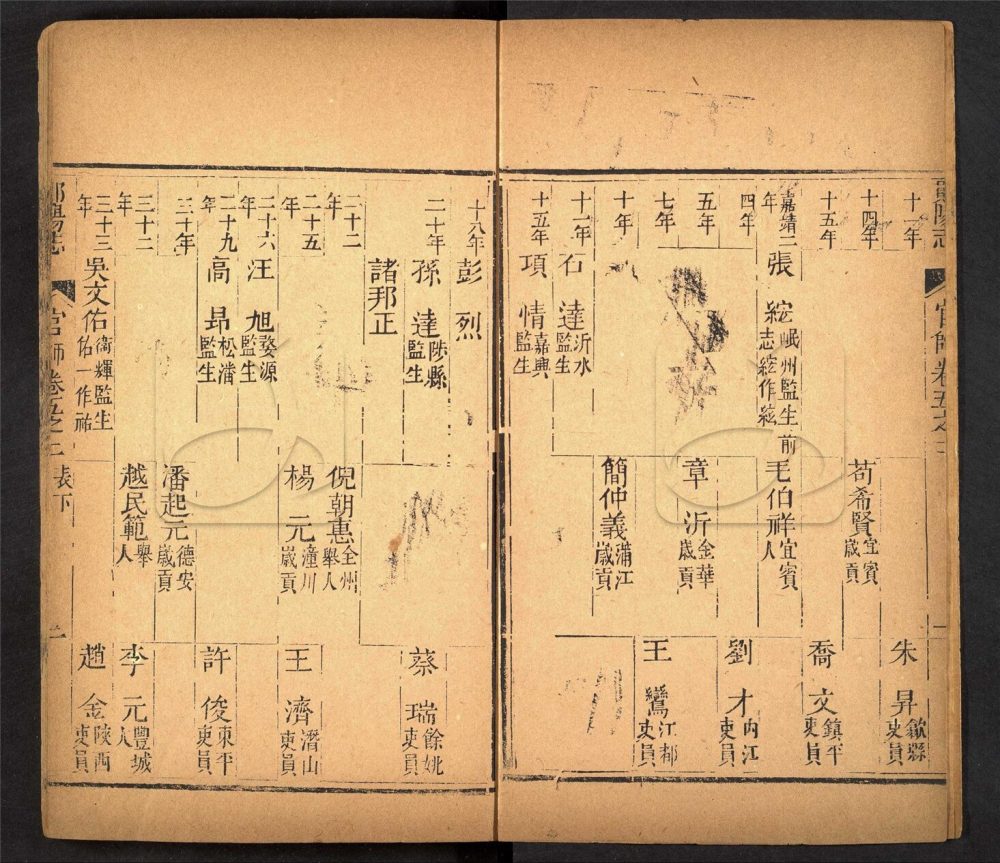 鄖陽志 官師卷五之二
十一年 朱昇歙縣吏員
十四年 苟希賢宜賓歲貢
十五年 喬文鎮平吏員
嘉靖二年 張綻岷州監生前志綻作綋 毛伯祥宜賓人
四年 劉才內江吏員
五年 章沂金華歲貢
七年 王鸞江都吏員
十年 簡仲義蒲江歲貢
十一年 石達沂水監生
十五年 項情嘉興監生
十八年 彭烈
二十年 孫達陟縣監生 蔡瑞餘姚吏員
諸邦正
二十二年 倪朝惠全州舉人
二十五年 楊元潼川歲貢 王濟潛山吏員
二十六年 汪旭婺源監生
二十九年 高昻松潘監生 許俊東平吏員
三十年 潘起元德安歲貢
三十二年 越民範舉人 李元豐城人
三十三年 吳文佑衞輝監生佑一作祐 趙金陝西吏員
鄖陽志 官師卷五之二 表下 二